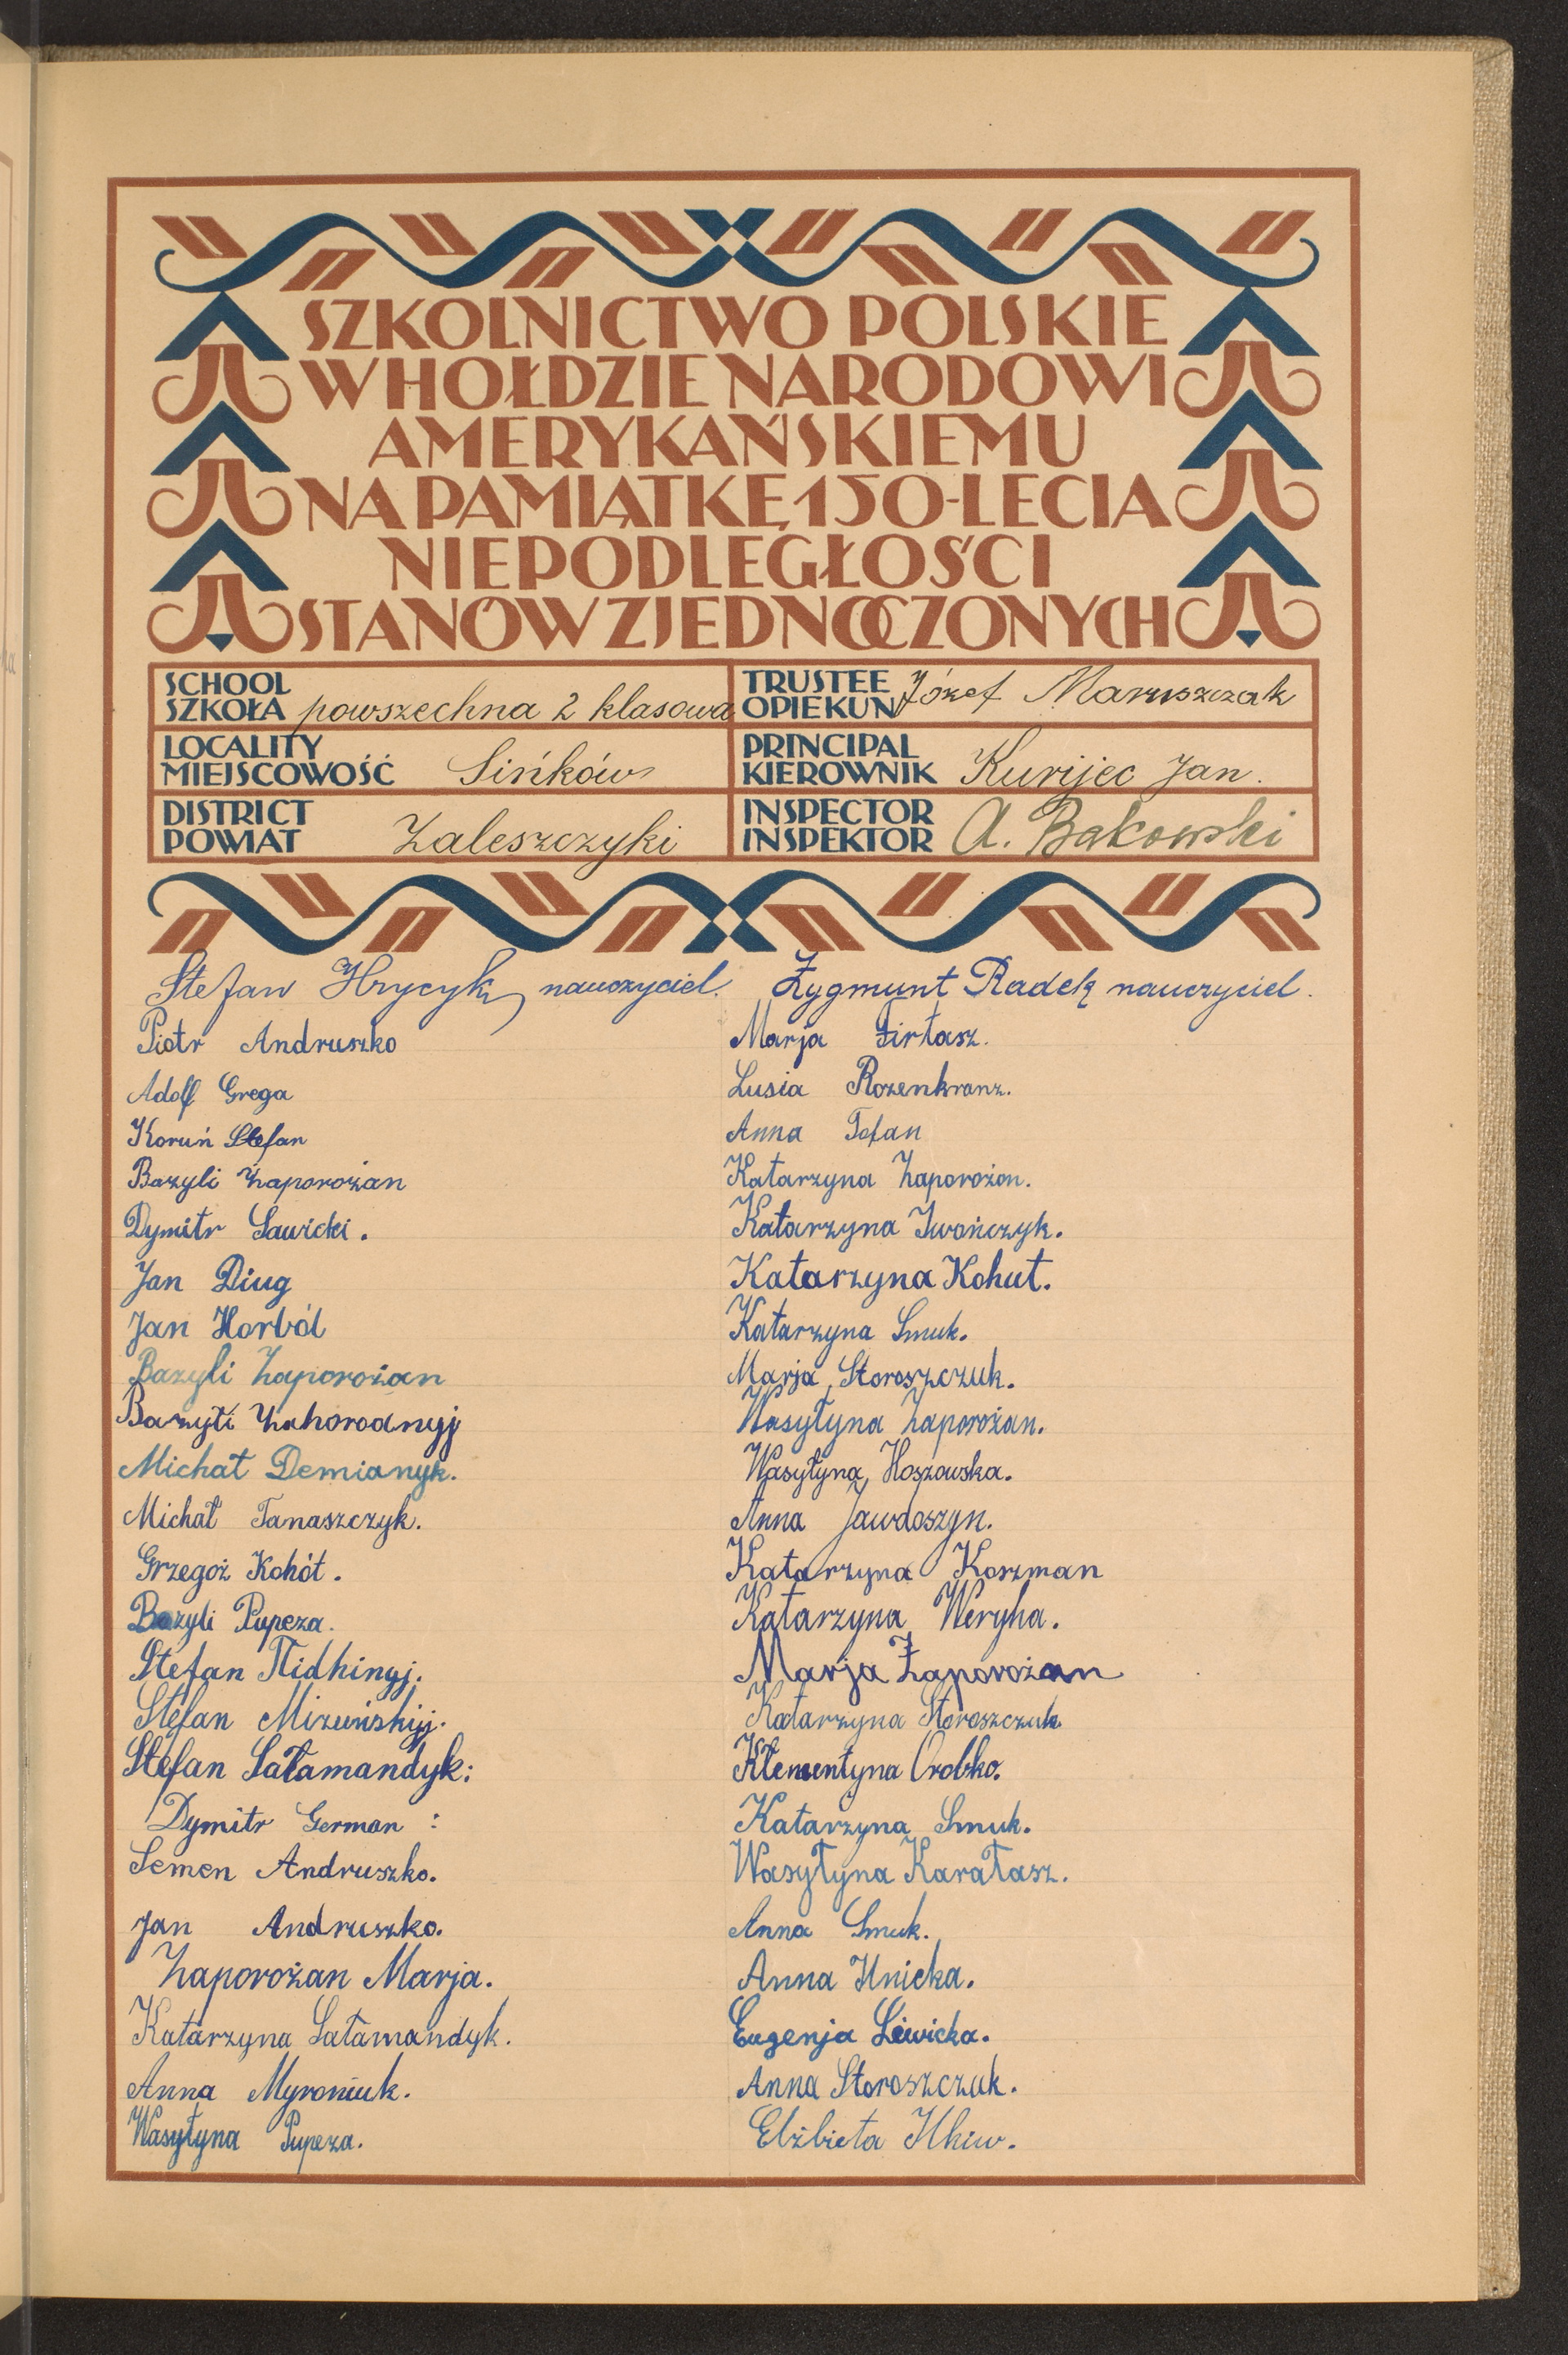 SZKOLNICTWO POLSKIE
W HOŁDZIE NARODOWI
AMERYKAŃSKIEMU
NA PAMIĄTKĘ 150-LECIA
NIEPODLEGŁOŚCI
STANÓW ZJEDNOCZONYCH
SCHOOL
SZKOŁA powszechna 2 klasowa
TRUSTEE
OPIEKUN Józef Maruszczak
LOCALITY
MIEJSCOWOŚĆ Sińków
PRINCIPAL
KIEROWNIK Kurijec Jan.
DISTRICT
POWIAT Zaleszczyki
INSPECTOR
INSPEKTOR A. Bakowski
Stefan Hrycyk nauczyciel.
Zygmunt Radek nauczyciel.
Piotr Andruszko
Adolf Grega
Koruń Stefan
Bazyli Zaporożan
Dymitr Sawicki.
Jan Diug
Jan Horból
Bazyli Zaporożan
Bazyli Zahorodnyj
Michał Demianyk.
Michał Tanaszczyk.
Grzegoż Kohót.
Bazyli Pupeza.
Stefan Pidhinyj.
Stefan Mizuńskyj.
Stefan Sałamandyk:
Dymitr German :
Semen Andruszko.
Jan Andruszko.
Zaporożan Marja.
Katarzyna Sałamandyk.
Anna Myroniuk.
Wasyłyna Pupeza.
Marja Firtasz.
Lusia Rozenkranz.
Anna Tefan
Katarzyna Zaporożan.
Katarzyna Iwańczyk.
Katarzyna Kohut.
Katarzyna Smuk.
Marja Storoszczuk.
Wasyłyna Zaporożan.
Wasyłyna Hoszowska.
Anna Jawdoszyn.
Katarzyna Koszman
Katarzyna Weryha.
Marja Zaporożan
Katarzyna Storoszczuk
Klementyna Orobko.
Katarzyna Smuk.
Wasyłyna Karałasz.
Anna Smuk.
Anna Hnicka.
Eugenja Lewicka.
Anna Storoszczuk.
Elżbieta Ilkiw.